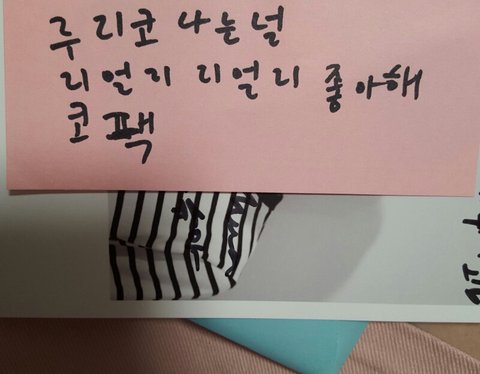 루리코 나는널
리얼리 리얼리 좋아해
코팩